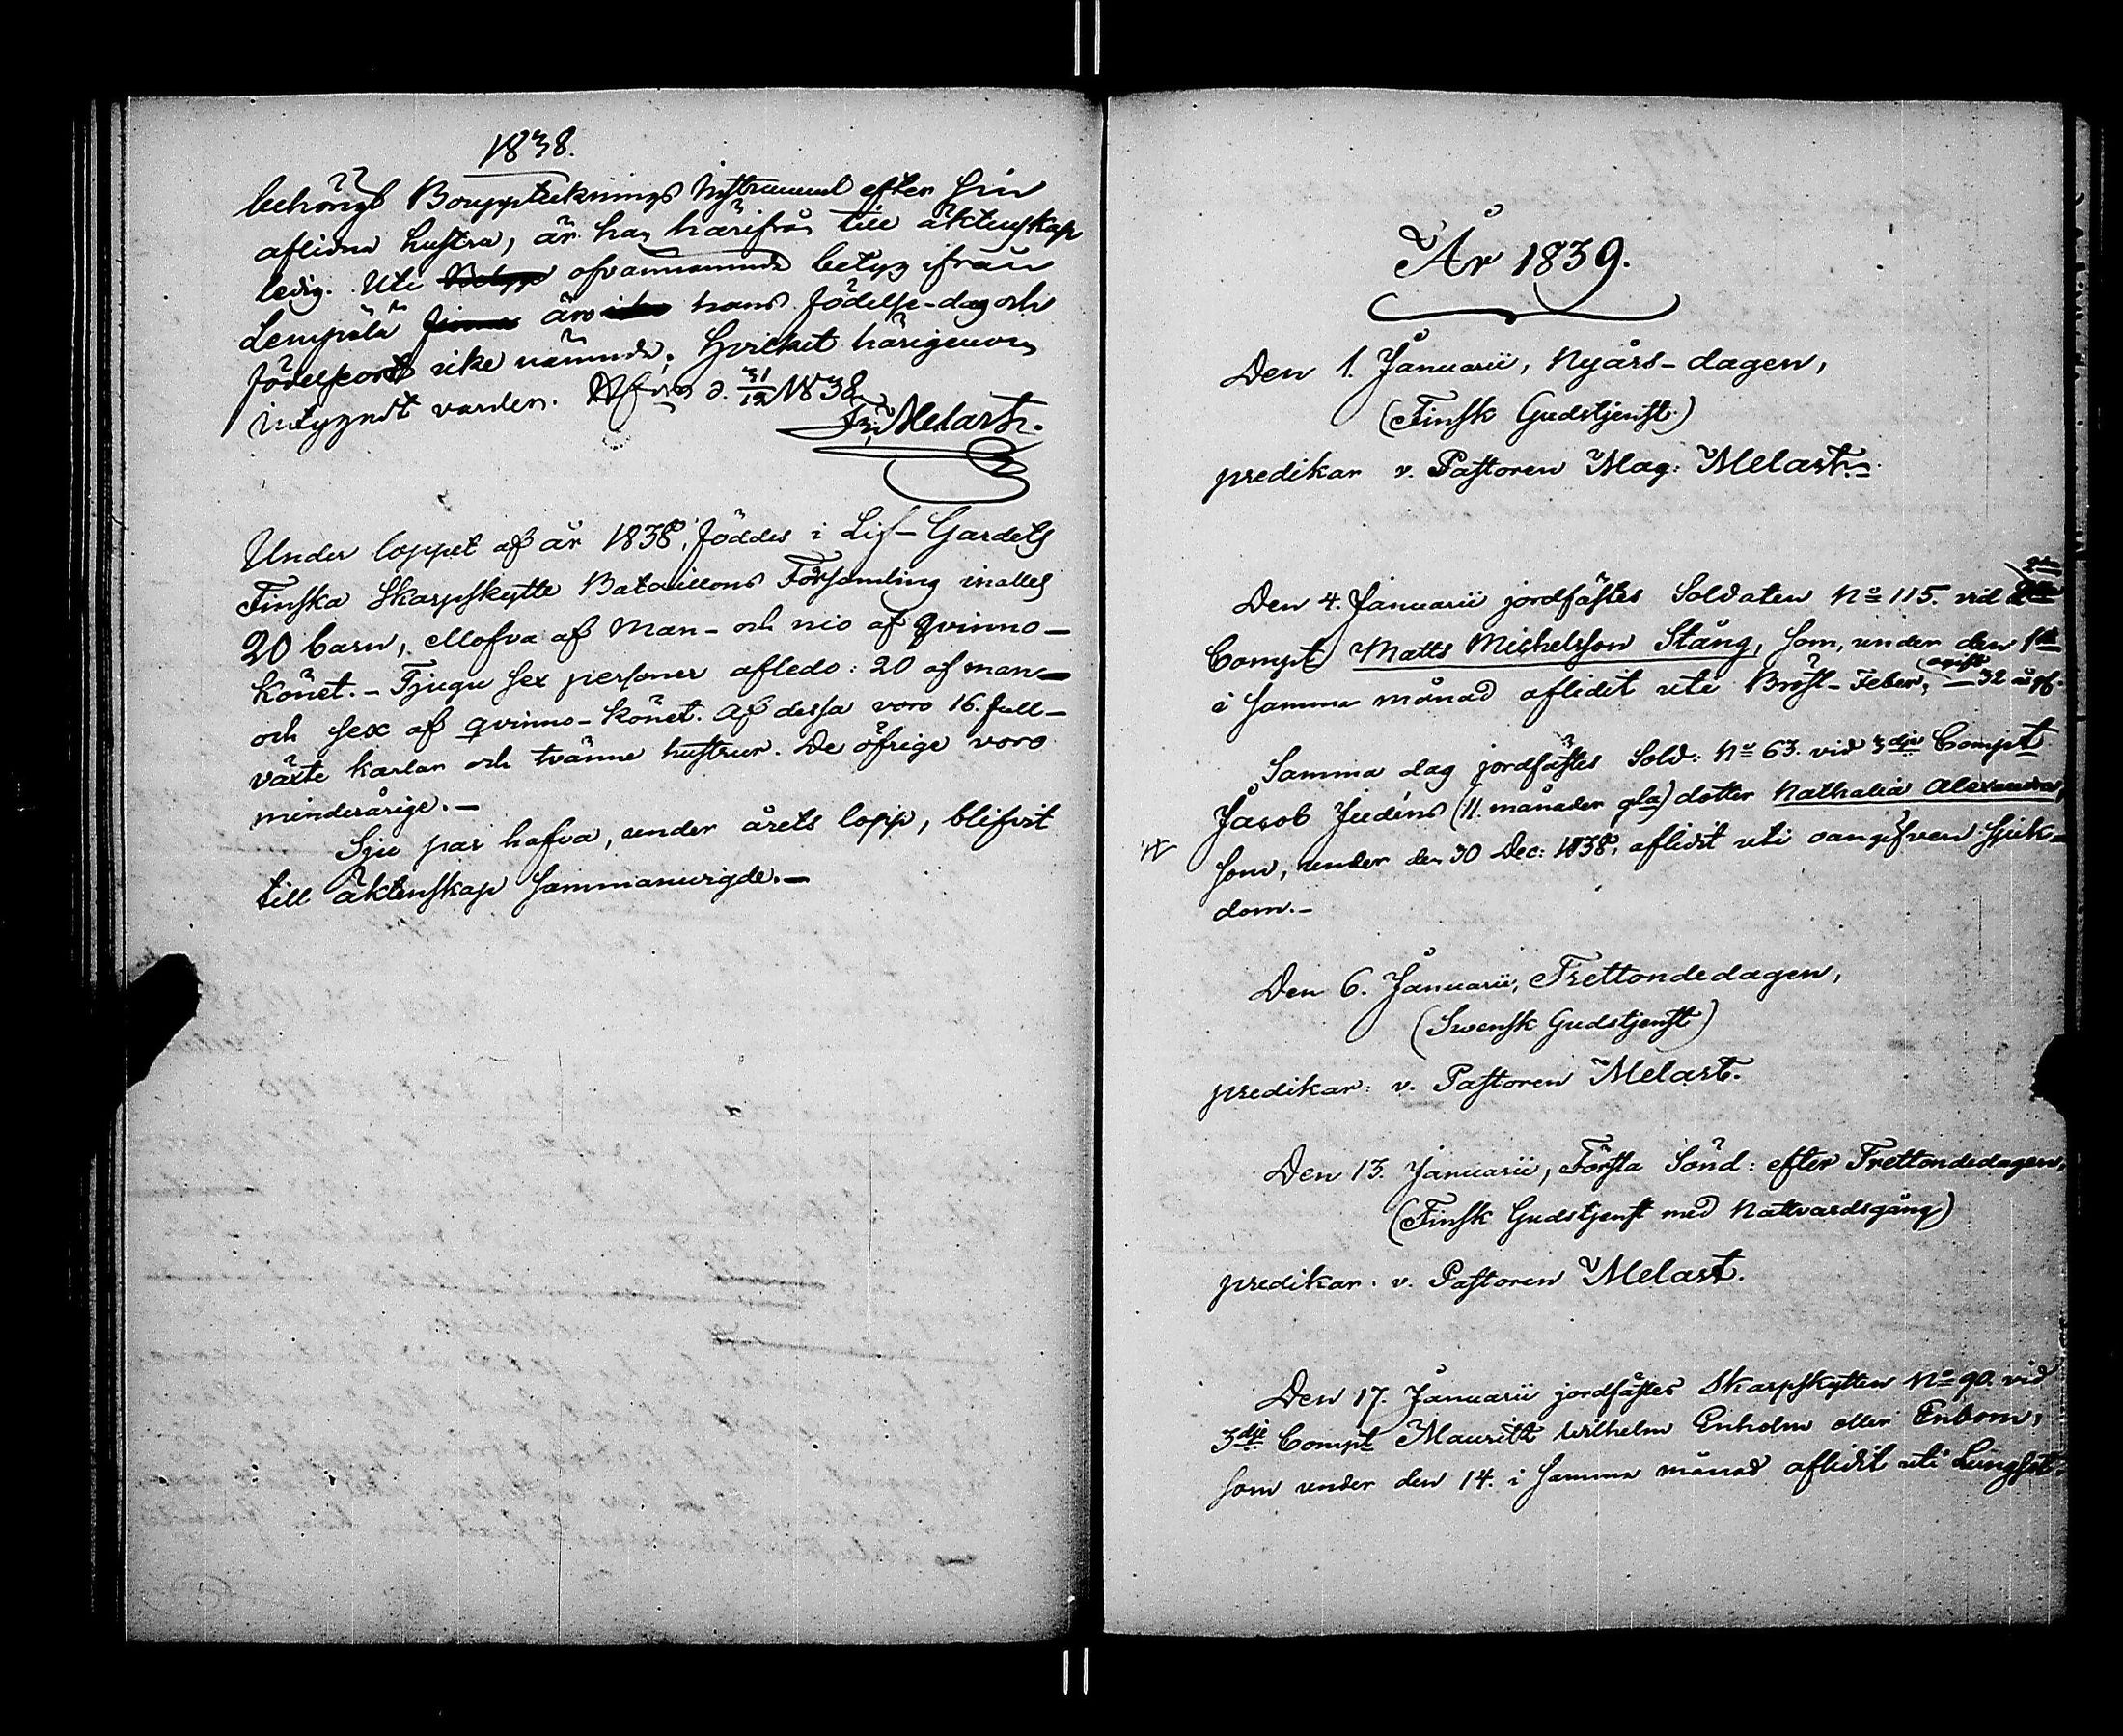 1838.
behörigt Bouppteknings Instrument efter sin
aflidna hustru, är han härifrån till äktenskap
ledig. Uti ofvannämnda betyg ifrån
Lempälä äro hans födelse-dag och
födelseort icke nämnda. Hvilket härigenom
intygadt varder. d. 31/12 1838.
Melart.
Under loppet af år 1838, föddes i Lif-Gardets
Finska Skarpskytte Bataillons Församling inalles
20 barn, ellofva af Man- och nio af qvinno-
könet. - Tjugu sex personer afledo: 20 af man-
och sex af qvinno-könet. Af dessa voro 16. full-
växte karlar och tvänne hustrur. De öfrige voro
minderårige. -
Sju par hafva, under årets lopp, blifvit
till äktenskap sammanvigde. -
År 1839.
Den 1. Januarii, Nyårs-dagen,
(Finsk Gudstjenst)
predikar v. Pastoren Mag: Melart.
Den 4. Januarii jordfästes Soldaten No 115. vid 2dra
Compt Matts Michelsson Stång, som, under den 1sta
i samma månad aflidit uti Bröst-Feber, ogift 32 år gl.
Samma dag jordfästes Sold: No 63. vid 3dje Compt
Jacob Judéns (11. månader gla) dotter Nathalia Alexandra,
som, under den 30 Dec: 1838, aflidit uti oangifven sjuk-
dom. -
Den 6. Januarii, Trettondedagen,
(Swensk Gudstjenst)
predikar: v. Pastoren Melart.
Den 13. Januarii, Första Sönd: efter Trettondedagen,
(Finsk Gudstjenst med Nattvardsgång)
predikar. v. Pastoren Melart.
Den 17. Januarii jordfästes Skarpskytten No 90. vid
3dje Compt Mauritz Wilhelm Enholm eller Enbom,
som under den 14. i samma månad aflidit uti Lungsot.